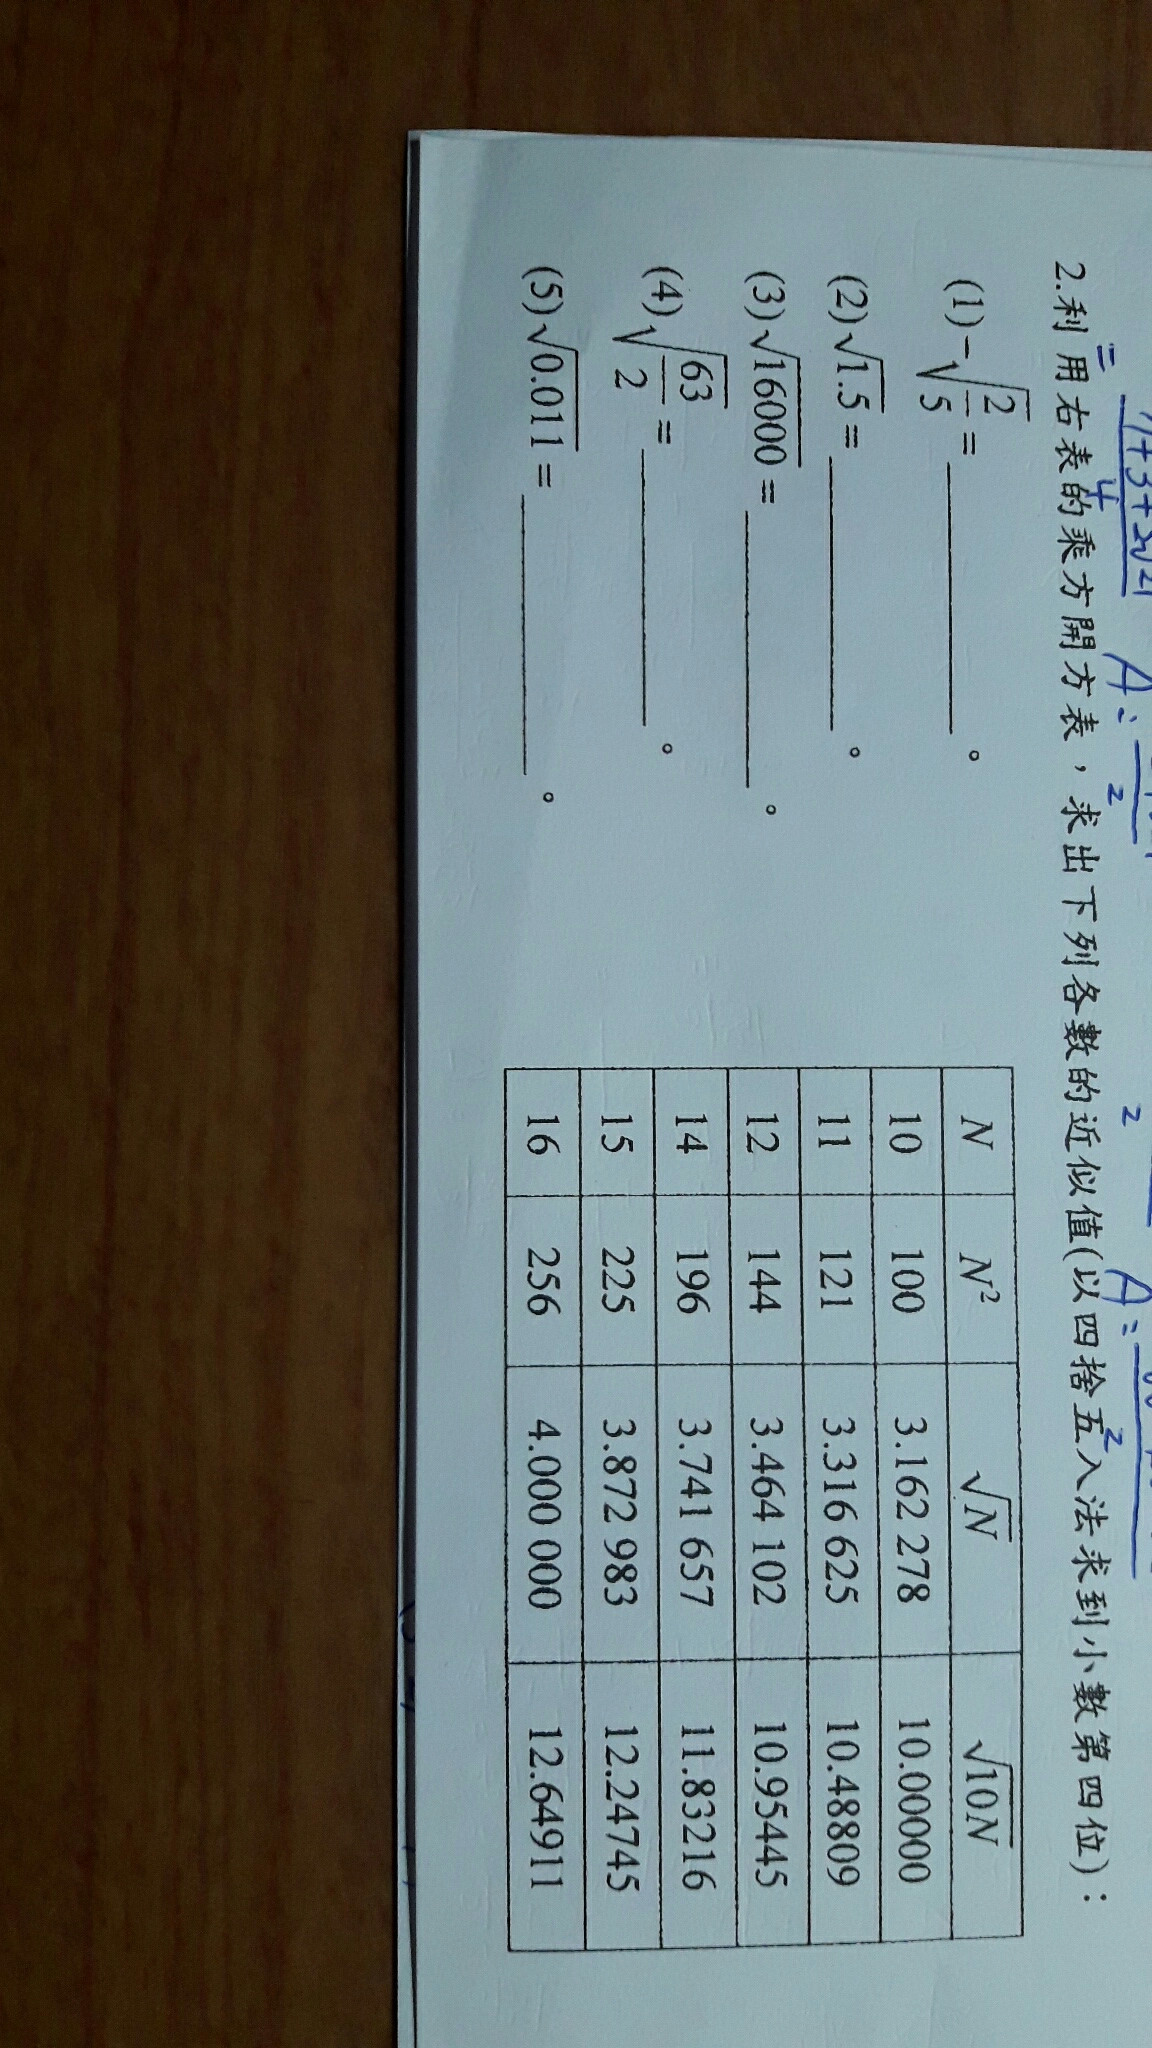 2.利用右表的乘方開方表，求出下列各數的近似值(以四捨五入法求到小數第四位)：
(1)-√(2/5)=________。
(2)√1.5=________。
(3)√16000=________。
(4)√(63/2)=________。
(5)√0.011=________。
N N² √N √10N
10 100 3.162 278 10.00000
11 121 3.316 625 10.48809
12 144 3.464 102 10.95445
14 196 3.741 657 11.83216
15 225 3.872 983 12.24745
16 256 4.000 000 12.64911